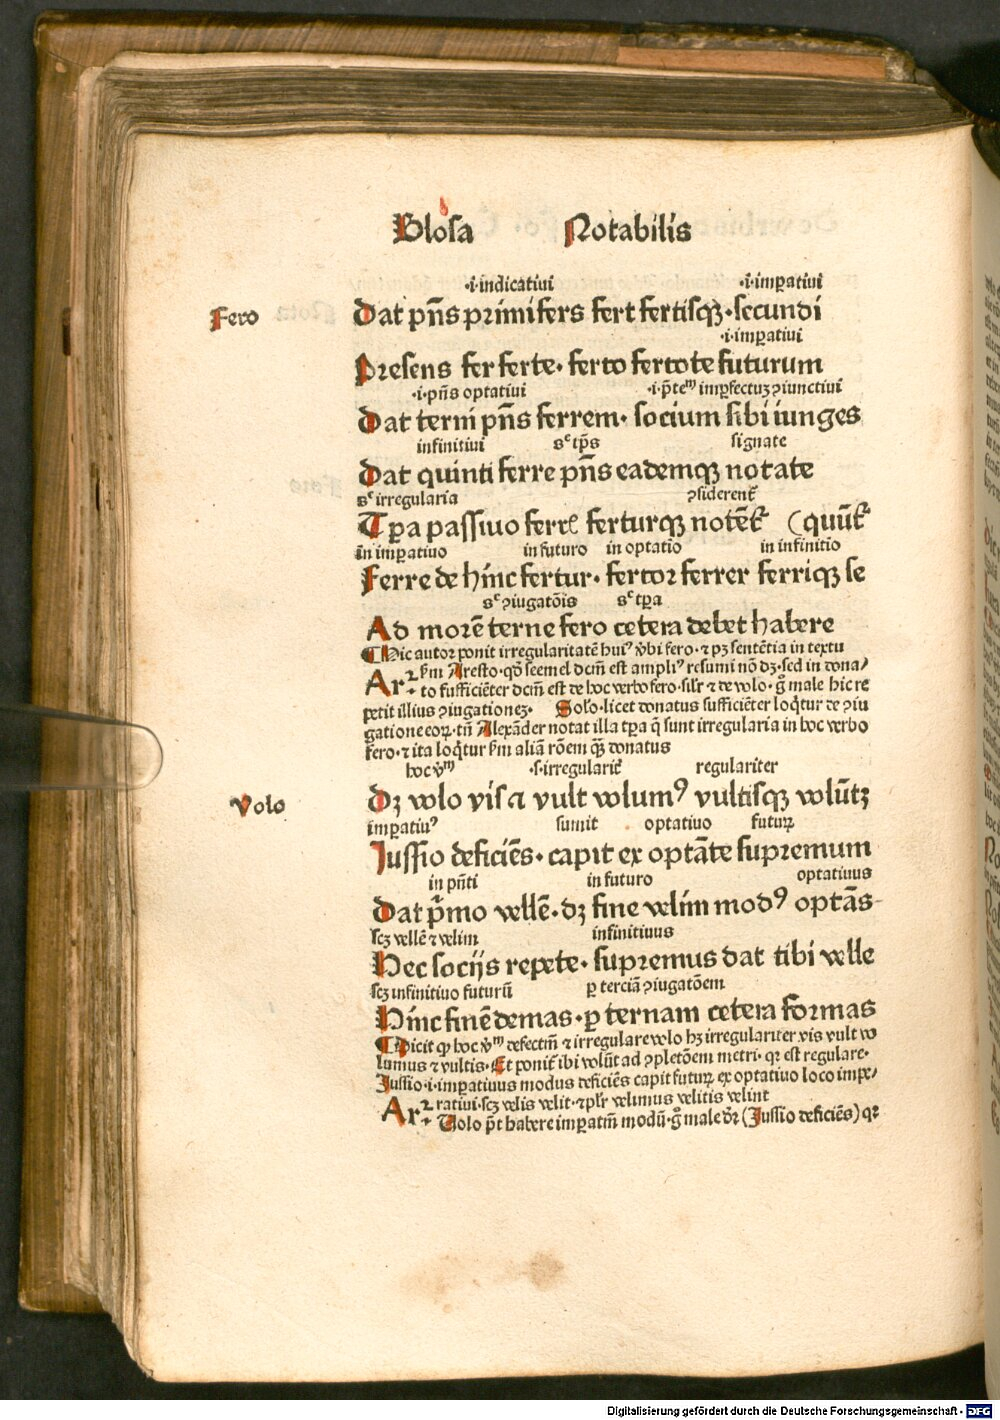 Glosa Notabilis
.i. indicatiui .i. imꝑatiui
Fero
Dat pn̄s primi fers fert fertisqꝫ. secundi
.i. imꝑatiui
Presens fer ferte. ferto fertote futurum
.i. pn̄s optatiui .i. p̄teᵐ imꝑfectuꝫ ꝯiunctiui
Dat terni pn̄s ferrem. socium sibi iunges
infinitiui sᶜ tp̄s signate
Dat quinti ferre pn̄s eademqꝫ notate
sᶜ irregularia ꝯsiderent᷑
Tꝑa passiuo ferrͤ ferturqꝫ notēt᷑ (quūt᷑
in imꝑatiuo in futuro in optatiō in infinitiō
Ferre de hinc fertur. fertor ferrer ferriqꝫ se
sᶜ ꝯiugatōis sᶜ tꝑa
Ad morē terne fero cetera debet habere
¶ Hic autor ponit irregularitatē huiꝰ v̓bi fero. ⁊ pꝫ sentētia in textu
Ar. km̄ Aresto. qd̓ seemel dcm̄ est ampliꝰ resumi nō dꝫ. sed in dona/
to sufficiēter dcm̄ est de hoc verbo fero. silr̄ ⁊ de volo. g̊ male hic re
petit illius ꝯiugationeꝫ. Solo. licet donatus sufficiēter loq̄tur de ꝯiu
gatione eoꝝ. tn̄ Alexāder notat illa tꝑa q̄ sunt irregularia in hoc verbo
fero. ⁊ ita loq̄tur km̄ aliā rōem q̄ꝫ donatus
hoc v̓ᵐ .s. irregularit̓ regulariter
Volo
Dꝫ volo vis a vult volumꝰ vultisqꝫ volūtꝫ
imꝑatiuꝰ sumit optatiuo futuꝝ
Iussio deficiēs. capit ex optāte supremum
in pn̄ti in futuro optatiuus
Dat p̄mo vellē. dꝫ fine velim modꝰ optās
scꝫ vellē ⁊ velim infinitiuus
Hec socijs repete. supremus dat tibi velle
scꝫ infinitiuo futurū ꝑ terciā ꝯiugatōem
Hinc finē demas. ꝑ ternam cetera formas
¶ Dicit ꝙ hoc v̓ᵐ defectm̄ ⁊ irregulare volo hꝫ irregulariter vis vult vo
lumus ⁊ vultis. Et ponit̓ ibi volūt ad ꝯpletōem metri. qꝛ est regulare.
Iussio .i. imꝑatiuus modus deficiēs capit futuꝝ ex optatiuo loco impe/
ratiui. scꝫ velis velit. ⁊ plr̄ velimus velitis velint
Ar. Volo p̄t habere imꝑatm̄ modū. g̊ male dꝛ (Iussio deficiēs) qꝛ
Digitalisierung gefördert durch die Deutsche Forschungsgemeinschaft - DFG